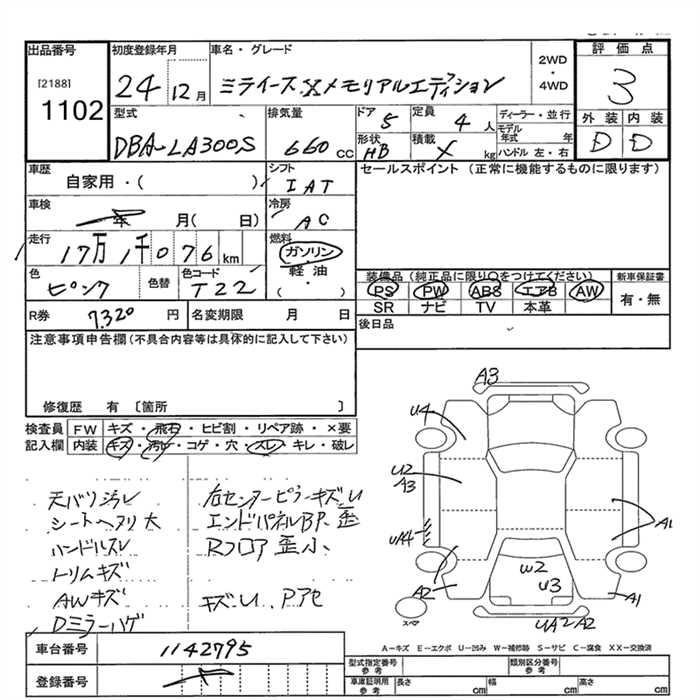 出品番号
[2188]
1102
初度登録年月
24 12月
車名・グレード
ミライース X メモリアルエディション
2WD
・
4WD
評価点
3
型式
DBA-LA300S
排気量
660 cc
ドア
5
定員
4 人
ディーラー・並行
モデル年式 年
形状
HB
積載
X kg
ハンドル 左・右
外装 内装
D D
車歴
自家用・( )
シフト
IAT
セールスポイント (正常に機能するものに限ります)
車検
年 月( 日)
冷房
AC
走行
17万1千076km
燃料
ガソリン
軽油
・
( )
色
ピンク
色替
色コード
T22
装備品 (純正品に限り○をつけてください)
PS PW ABS エアB AW
SR ナビ TV 本革
新車保証書
有・無
R券
7320 円
名変期限 月 日
後日品
注意事項申告欄(不具合内容等は具体的に記入して下さい)
修復歴 有 〔箇所 〕
検査員記入欄
FW キズ・飛石・ヒビ割・リペア跡・×要
内装 キズ・汚レ・コゲ・穴・スレ・キレ・破レ
天バリ汚レ
シートヘタリ 大
ハンドルスレ
トリムキズ
AWキズ
Dミラーハゲ
右センターピラーキズU
エンドパネルBP歪
Rフロア歪小
キズU Pアセ
A3
U4
U2
A3
UA4
A1
W2
U3
A2
A1
スペア
UA2 A2
A-キズ E-エクボ U-凹み W-補修跡 S-サビ C-腐食 XX-交換済
車台番号
1142795
登録番号
型式指定番号
参考
類別区分番号
参考
車庫証明用
参考
長さ cm
幅 cm
高さ cm